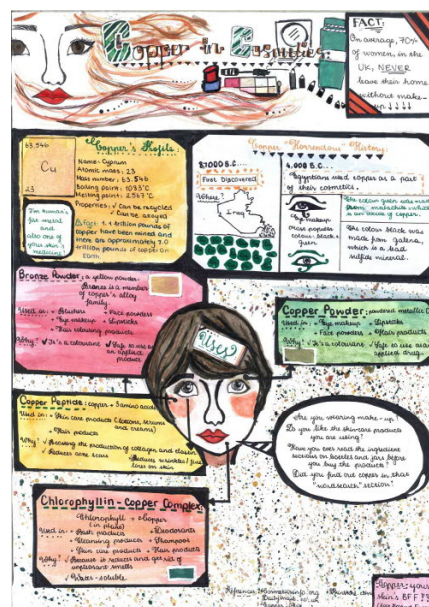 Copper in Cosmetics:
FACT:
On average, 70%
of women, in the
UK, NEVER
leave their home
without make-
up ↓↓↓↓
Copper's Profile:
63.546
Cu
Name: Cyprum
Atomic mass: 23
Mass number: 63.546
Boiling point: 1083°C
Melting point: 2567°C
Properties: ✓ Can be recycled
✓ Can be alloyed
I'm human's
1st metal
and also
one of
your skin's
medicine!
million pounds of
copper have been mined and
there are approximately
million pounds of copper on
Earth.
Copper Horrendous History:
First Discovered
Where?
Iraq
4,000 B.C...
Egyptians used copper as a part
of their cosmetics.
Eye makeup
most popular
colour: black &
green
The colour green was made
from malachite which
is an oxide of copper.
The colour black was
made from galena,
which is a lead
sulfide mineral.
Bronze Powder: a yellow powder.
Bronze is a member
of copper's alloy
family.
Used in: • Blushers • Face powders
• Eye makeup • Lipsticks
• Hair colouring products
Why? ✓ It's a colourant ✓ Safe to use as
an applied
product
Uses
Copper Powder: powdered metallic
Used in: • Eye makeup • Lipsticks
• Face powders • Hair products
Why? ✓ It's a colourant ✓ Safe to use as an
applied drug.
Copper Peptide: copper + 3 amino acids
Used in: • Skin care products (lotions, serums
and creams)
• Hair products
Why? ✓ Boosting the production of collagen and elastin
✓ Reduces acne scars ✓ Reduces wrinkles/fine
lines on skin
Are you wearing make-up?
Do you like the skin-care products
you are using?
Have you ever read the ingredient
sections on bottles and jars before
you buy the products?
Did you find out copper in that
"wordsearch" section?
Chlorophyllin-Copper Complex:
Chlorophyll + Copper
(in plants)
Used in: • Bath products • Deodorants
• Cleaning products • Shampoos
• Skin care products • Hair products
Why? ✓ Because it reduces and gets rid of
unpleasant smells
✓ Water-soluble.
Copper: your
skin's BFF??